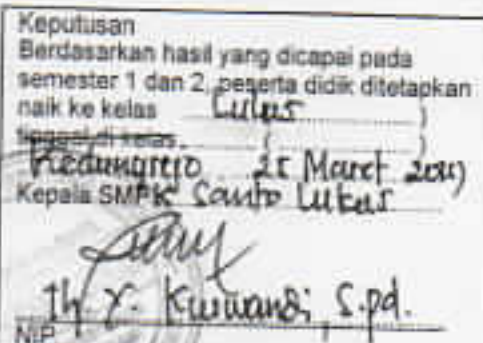 Keputusan
Berdasarkan hasil yang dicapai pada
semester 1 dan 2, peserta didik ditetapkan
naik ke kelas Lulus )
tinggal di kelas )
Kedungrejo Maret
Kepala SMPK Santo Lukas
Th. Y. S.pd.
NIP